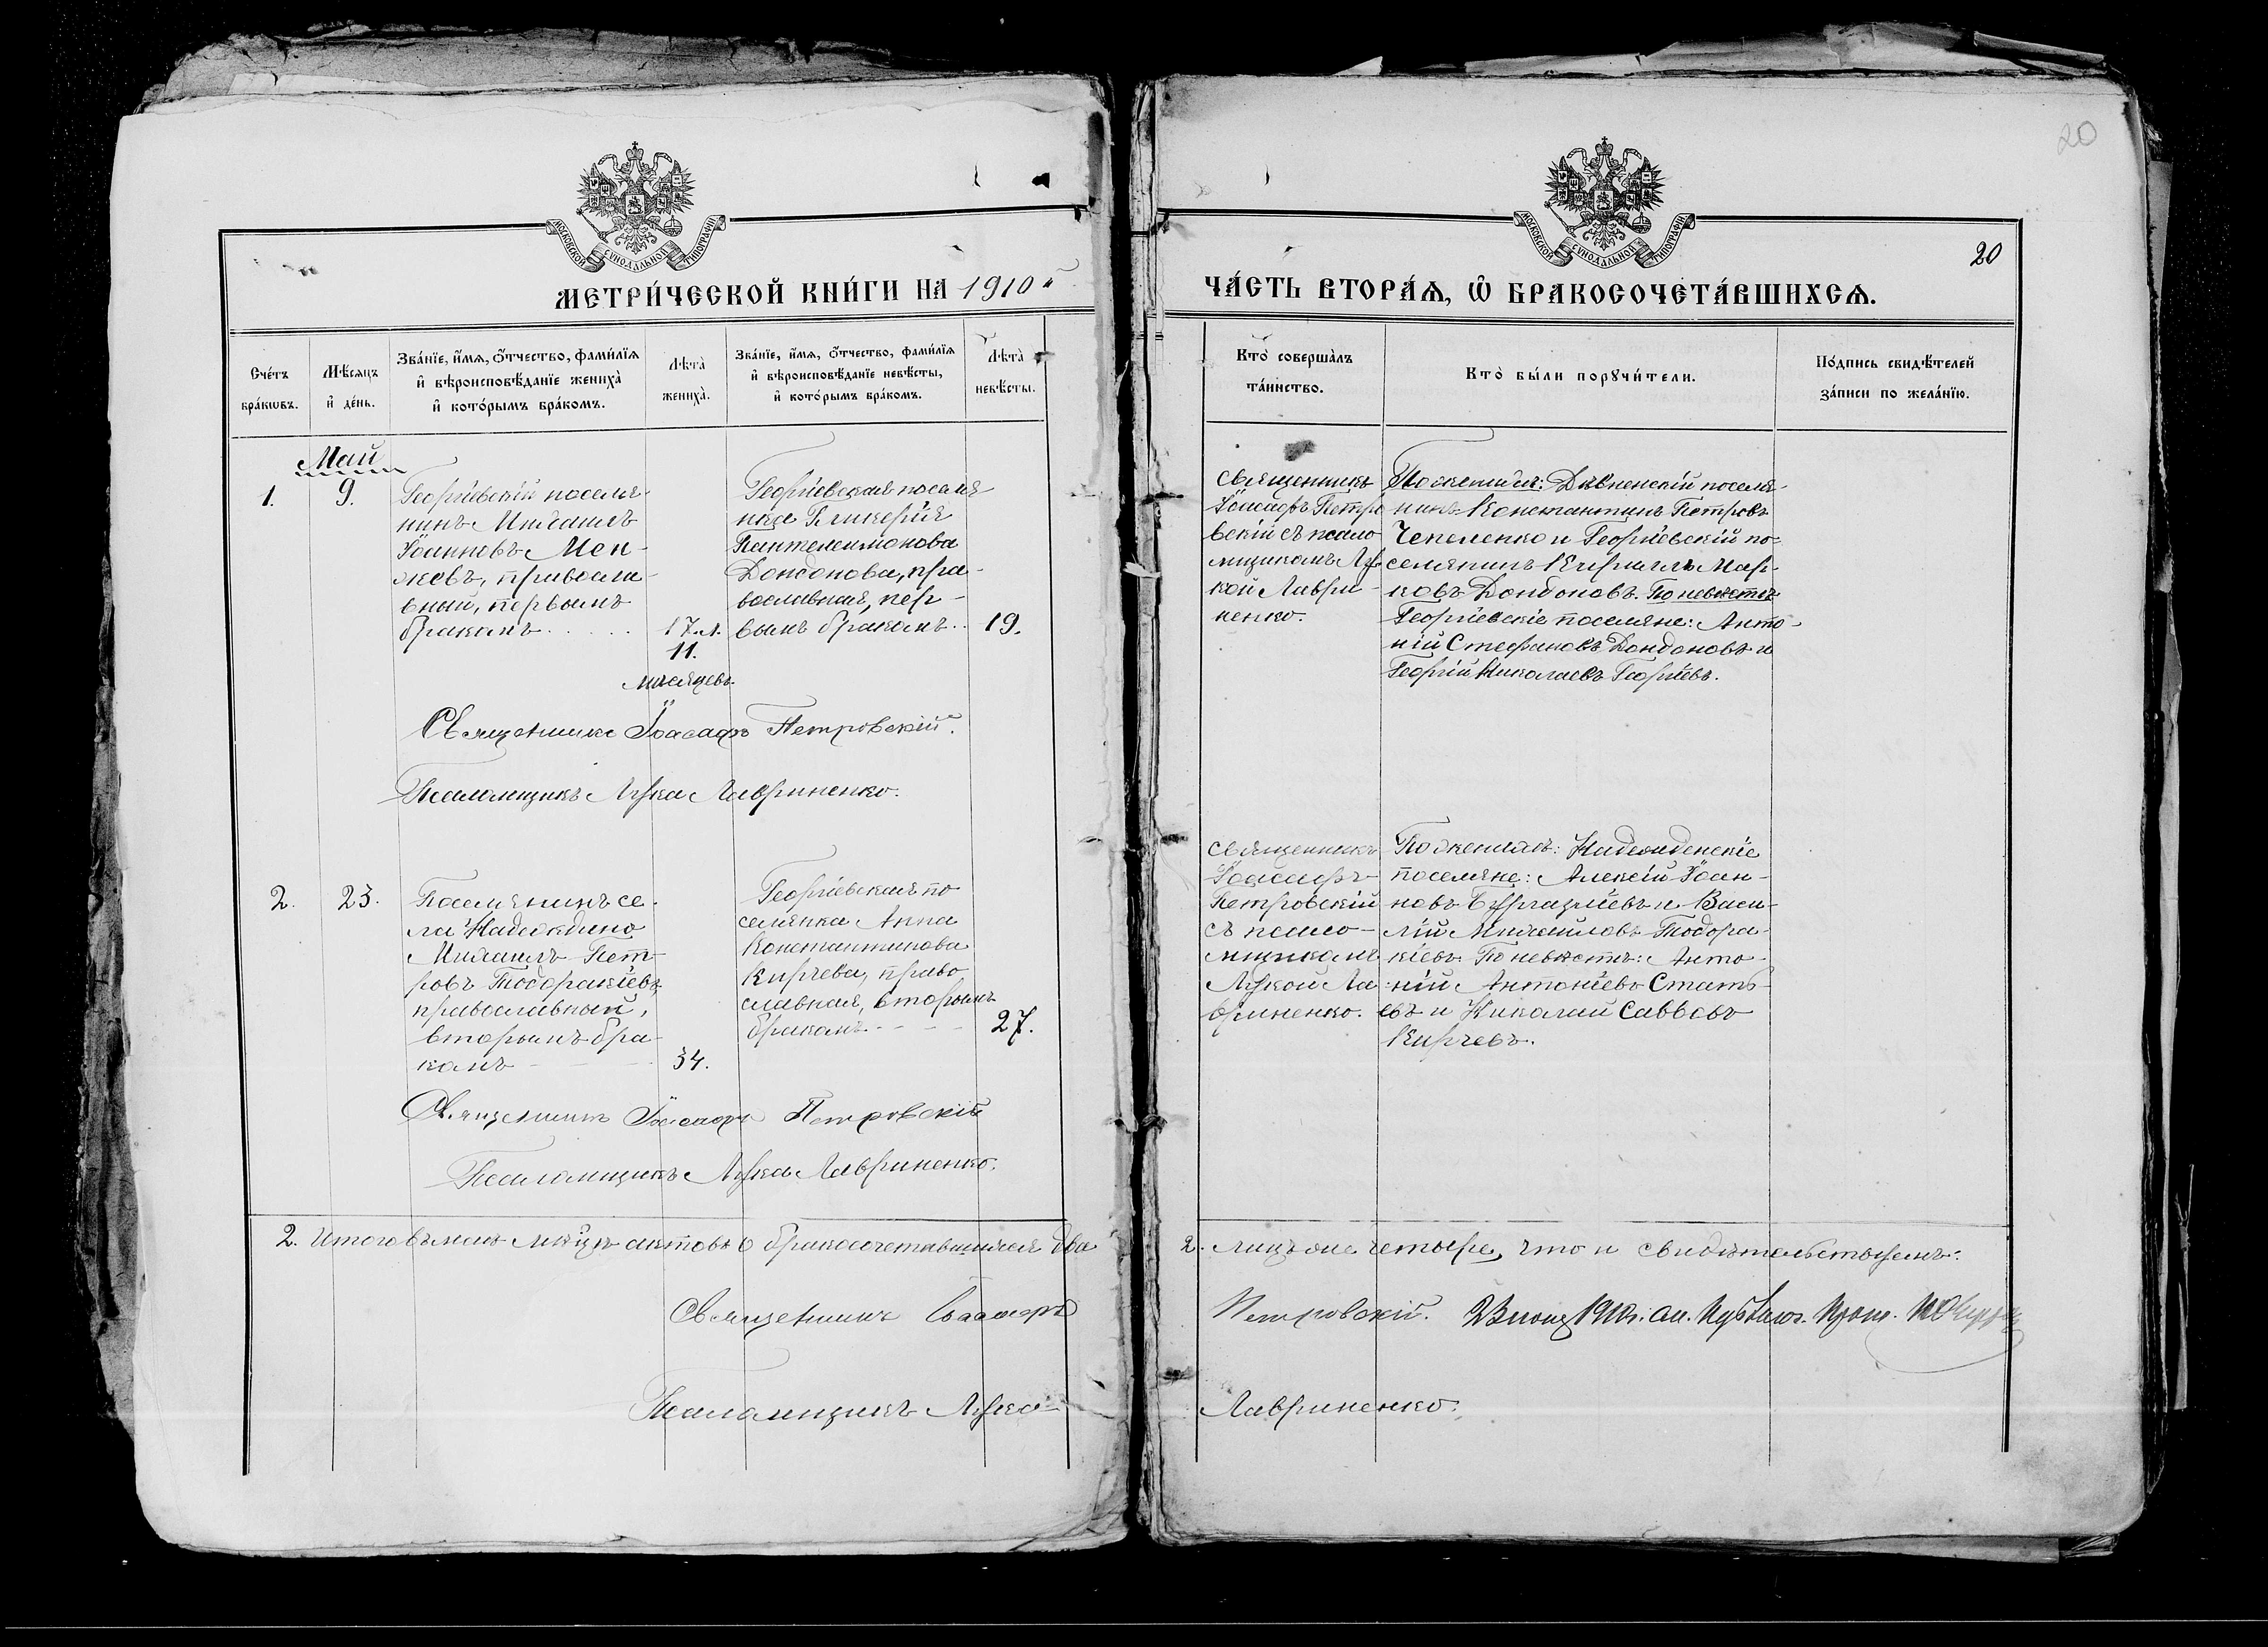 20
МОСКОВСКОЙ СѴНОДАЛЬНОЙ ТИПОГРАФІИ
МЕТРИ́ЧЕСКОЙ КНИ́ГИ НА 1910 й
Сче́тъ бра́кωвъ.
Мѣ́сяцъ и҆ де́нь.
Зва́нїе, и҆́мѧ, ѻ҆́тчество, фами́лїѧ и҆ вѣроисповѣ́данїе жениха̀ и҆ кото́рымъ бра́комъ.
Лѣта̀ жениха̀.
Зва́нїе, и҆́мѧ, ѻ҆́тчество, фами́лїѧ и҆ вѣроисповѣ́данїе невѣ́сты, и҆ кото́рымъ бра́комъ.
Лѣта̀ невѣ́сты.
Май
1.
9.
Георгіевскій поселя-
нинъ Михаилъ
Іоанновъ Мен-
жевъ, правосла-
вный, первымъ
бракомъ
17 л.
11.
мѣсяцевъ.
Георгіевская поселя
нка Гликерія
Пантелеимонова
Дондонова, пра-
вославная, пер-
вымъ бракомъ
19.
Священникъ Іоасафъ Петровскій.
Псаломщикъ Лука Лавриненко.
2.
23.
Поселянинъ се-
ла Надеждино
Михаилъ Пет-
ровъ Тодоракіевъ,
православный,
вторымъ бра-
комъ
34.
Георгіевская по
селянка Анна
Константинова
Кирчева, право
славная, вторымъ
бракомъ
27.
Священникъ Іоасафъ Петровскій
Псаломщикъ Лука Лавриненко.
2. Итого въ маѣ мѣсяцѣ актовъ о бракосочетавшихся два
Священникъ Іоасафъ
Псаломщикъ Лука
МОСКОВСКОЙ СѴНОДАЛЬНОЙ ТИПОГРАФІИ
20
ЧА́СТЬ ВТОРА́Ѧ, Ѽ БРАКОСОЧЕТА́ВШИХСѦ.
Кто̀ соверша́лъ та́инство.
Кто̀ бы́ли порꙋчи́тели.
По́дпись свидѣ́телей за́писи по жела́нїю.
Священникъ
Іоасафъ Петро
вскій съ псало
мщикомъ Лу
кой Лаври-
ненко.
По женихѣ: Дивненскій поселя-
нинъ Константинъ Петровъ
Чепеленко и Георгіевскій по-
селянинъ Кириллъ Мар-
ковъ Дондоновъ. По невѣстѣ
Георгіевскіе поселяне: Анто-
ній Стефановъ Дондоновъ и
Георгій Николаевъ Георгіевъ.
Священникъ
Іоасафъ
Петровскій
съ псало-
мщикомъ
Лукой Ла
вриненко.
По женихѣ: Надежденскіе
поселяне: Алексій Іоан-
новъ и Васи-
лій Михайловъ Тодора-
кіевъ. По невѣстѣ: Анто-
ній Антоніевъ Стать-
евъ и Николай Саввовъ
Кирчевъ.
2. лицъ же четыре, что и свидѣтельствуемъ:
Петровскій.
1910 г.
Лавриненко.